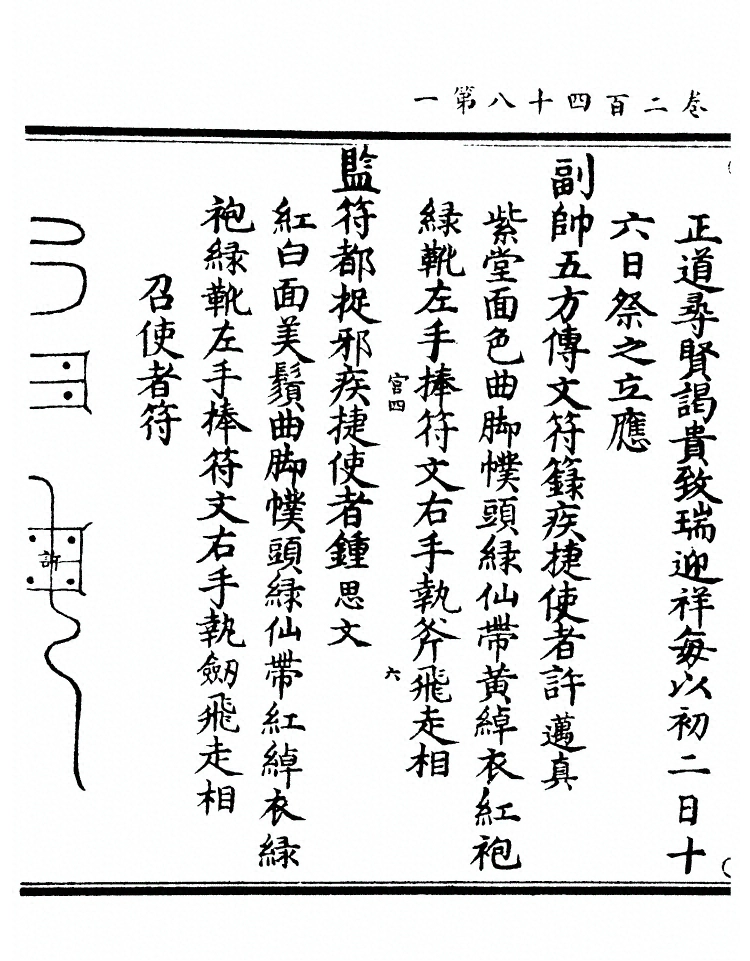 卷二百四十八第一
正道尋賢謁貴致瑞迎祥每以初二日十
六日祭之立應
副帥五方傳文符籙疾捷使者許邁真
紫堂面色曲脚幞頭緑仙帶黄綽衣紅袍
緑靴左手捧符文右手執斧飛走相
官四
六
監符都捉邪疾捷使者鍾思文
紅白面美鬚曲脚幞頭緑仙帶紅綽衣緑
袍緑靴左手捧符文右手執劔飛走相
召使者符
許